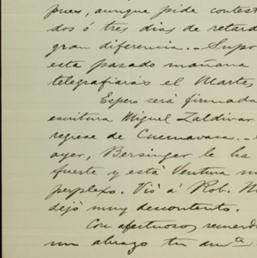 pues, aunque pide contest
dos ó tres dias de retard
gran diferencia.- Supo
esta pasado mañana
telegrafiarás el Martes
Espero será firmada
escritura Miguel Zaldivar
regrese de Cuernavaca.-
ayer, Bersinger le ha
fuerte y está Ventura m
perplexo. Vió á Rob. N
dejó muy descontento.
Con afectuosos recuerdo
un abrazo tu am<sup>te</sup>